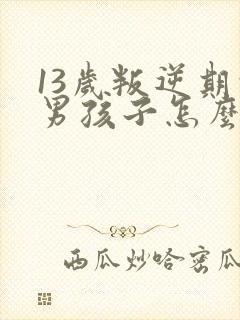 13歲叛逆期
男孩子怎麼
西瓜炒哈密瓜